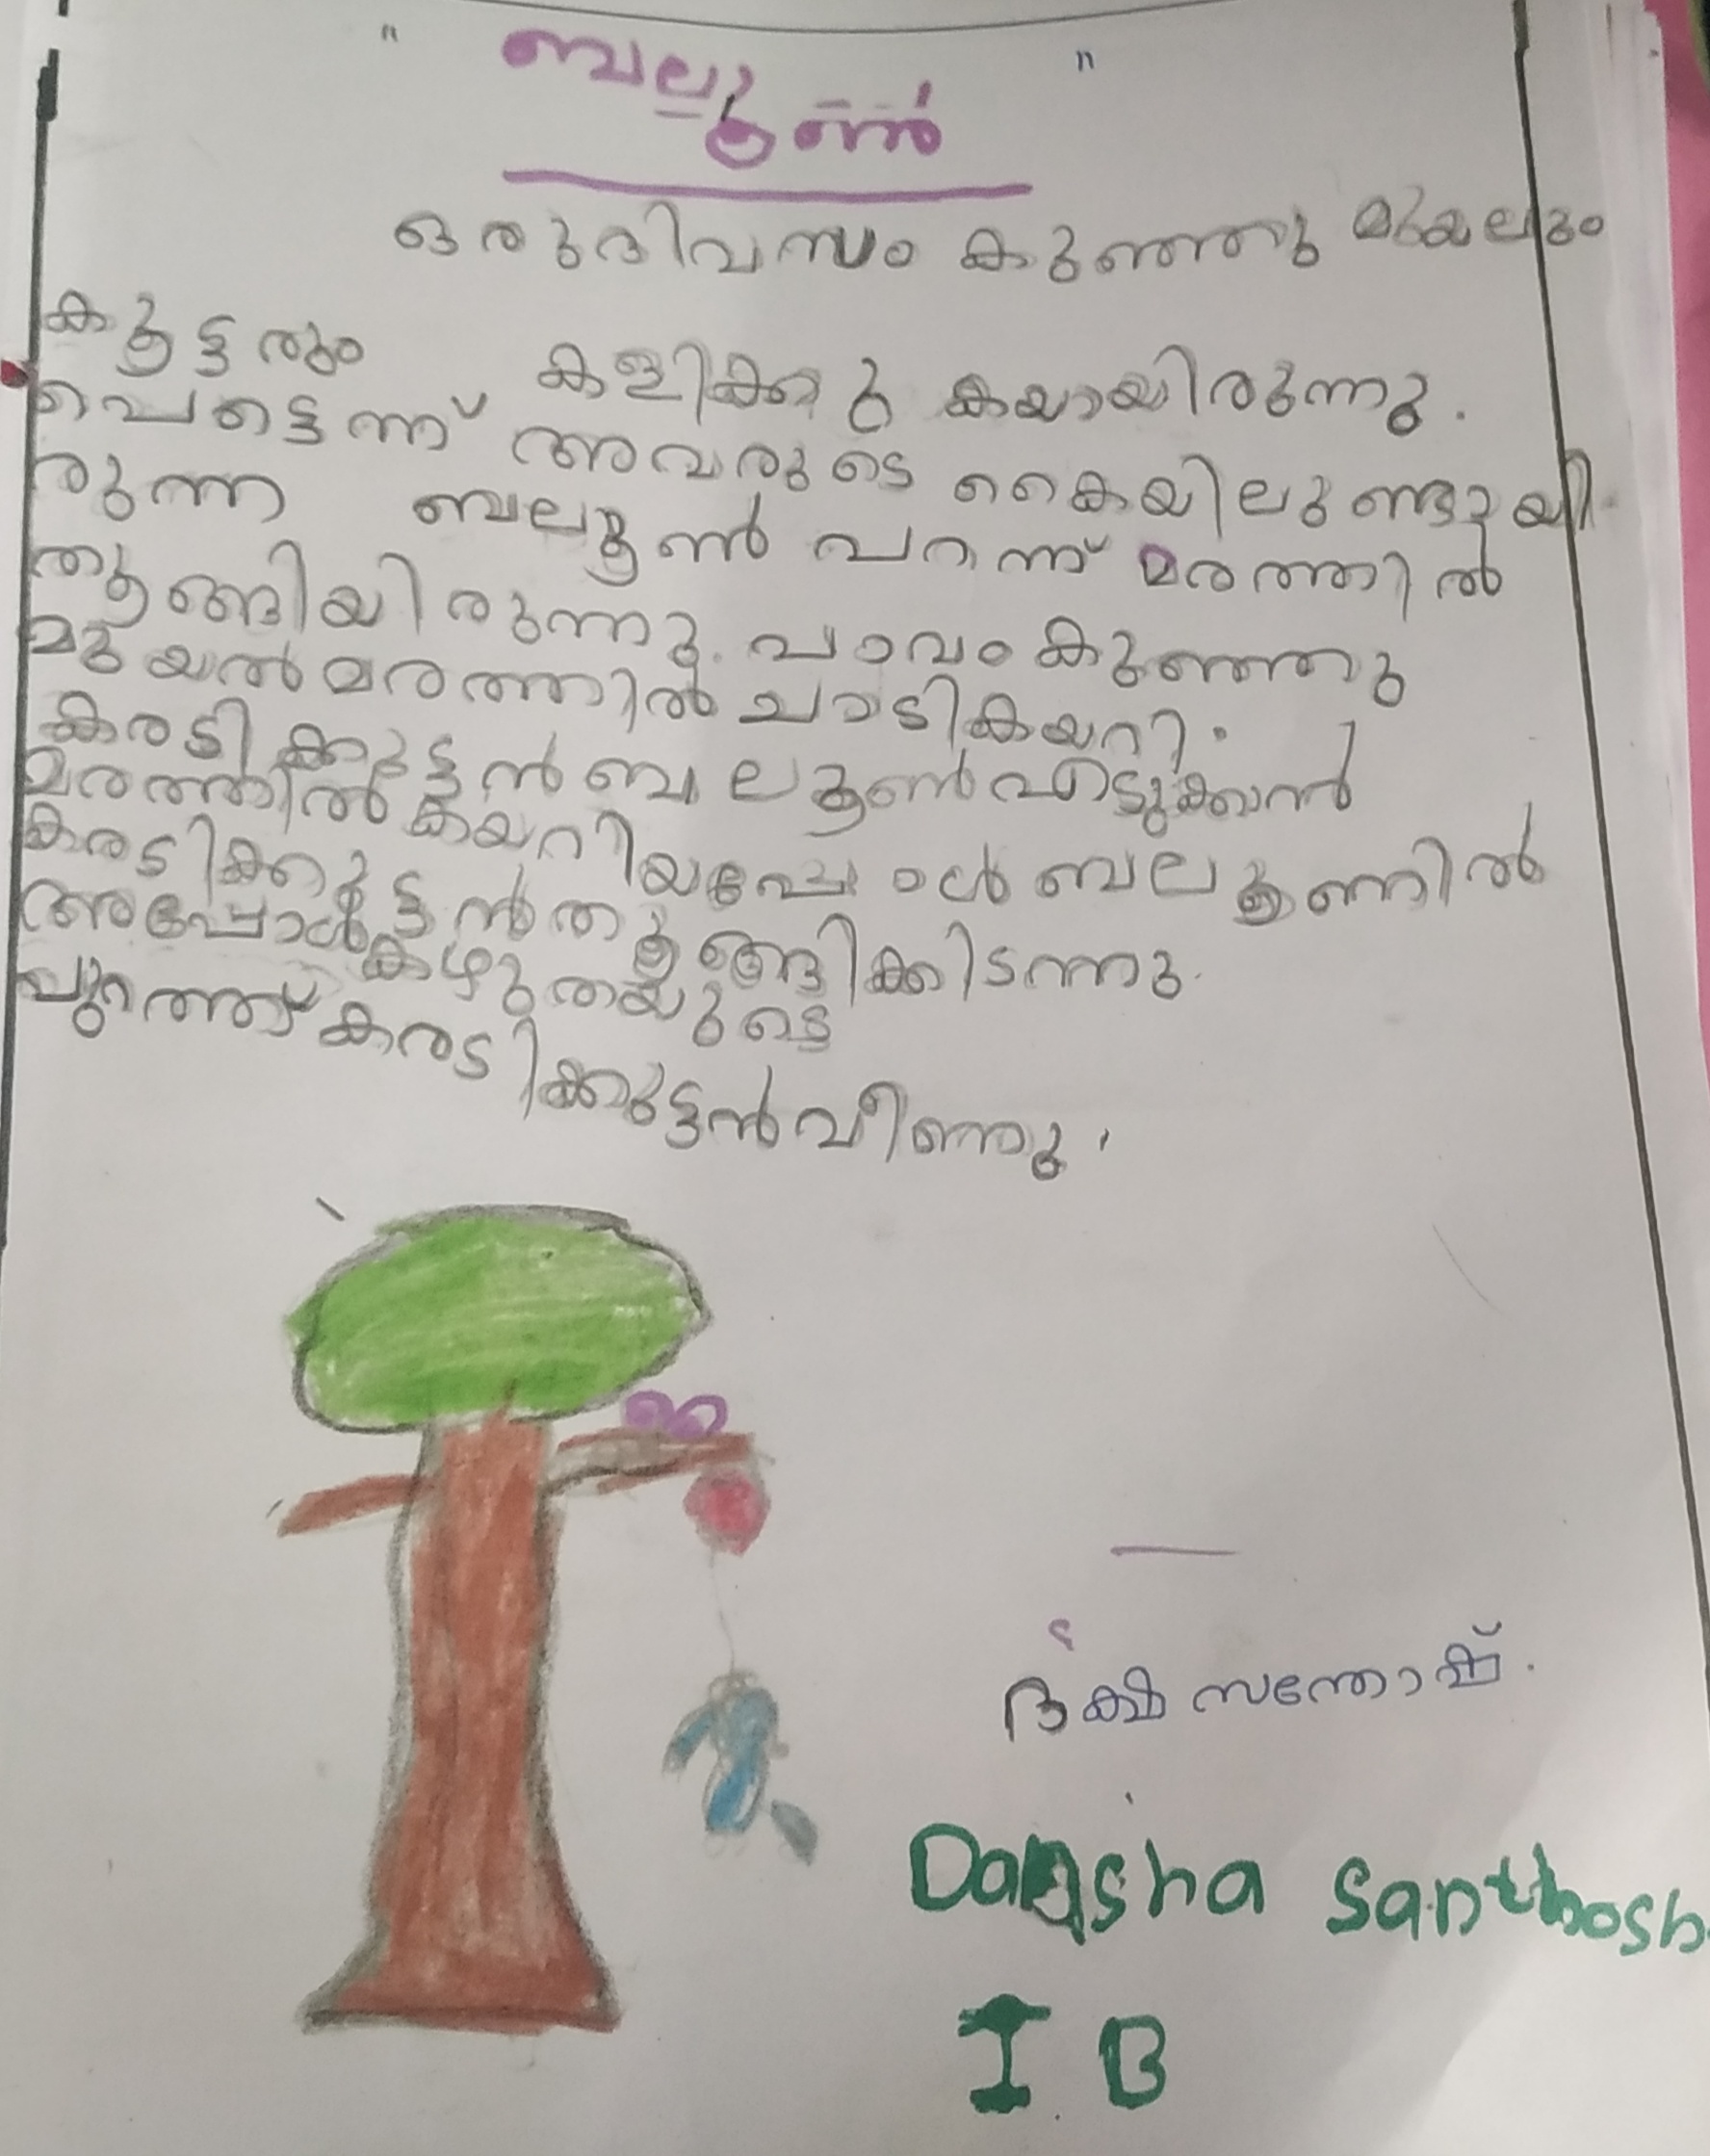 " ബലൂൺ "
ഒരുദിവസം കുഞ്ഞു മുയലും
കൂട്ടരും കളിക്കു കയായിരുന്നു.
പെട്ടെന്ന് അവരുടെ കൈയിലുണ്ടായി
രുന്ന ബലൂൺ പറന്ന് മരത്തിൽ
തൂങ്ങിയിരുന്നു. പാവം കുഞ്ഞു
മുയൽ മരത്തിൽ ചാടികയറി.
കരടിക്കുട്ടൻ ബലൂൺ എടുക്കാൻ
മരത്തിൽ കയറിയപ്പോൾ ബലൂണിൽ
കരടിക്കുട്ടൻ തൂങ്ങിക്കിടന്നു.
അപ്പോൾ കഴുതയുടെ
പുറത്ത് കരടിക്കുട്ടൻ വീണു.
ദക്ഷ സന്തോഷ്.
Daksha Santhosh
I B